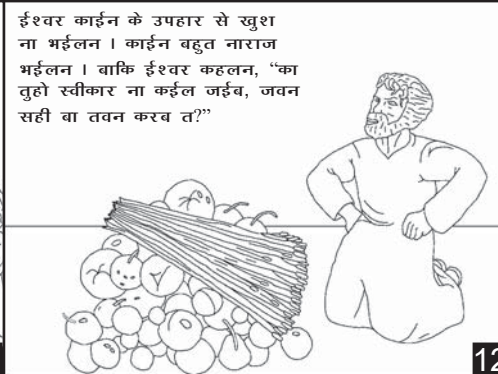 ईश्वर काईन के उपहार से खुश
ना भईलन । काईन बहुत नाराज
भईलन । बाकि ईश्वर कहलन, “का
तुहो स्वीकार ना कईल जईब, जवन
सही बा तवन करब त?”
12